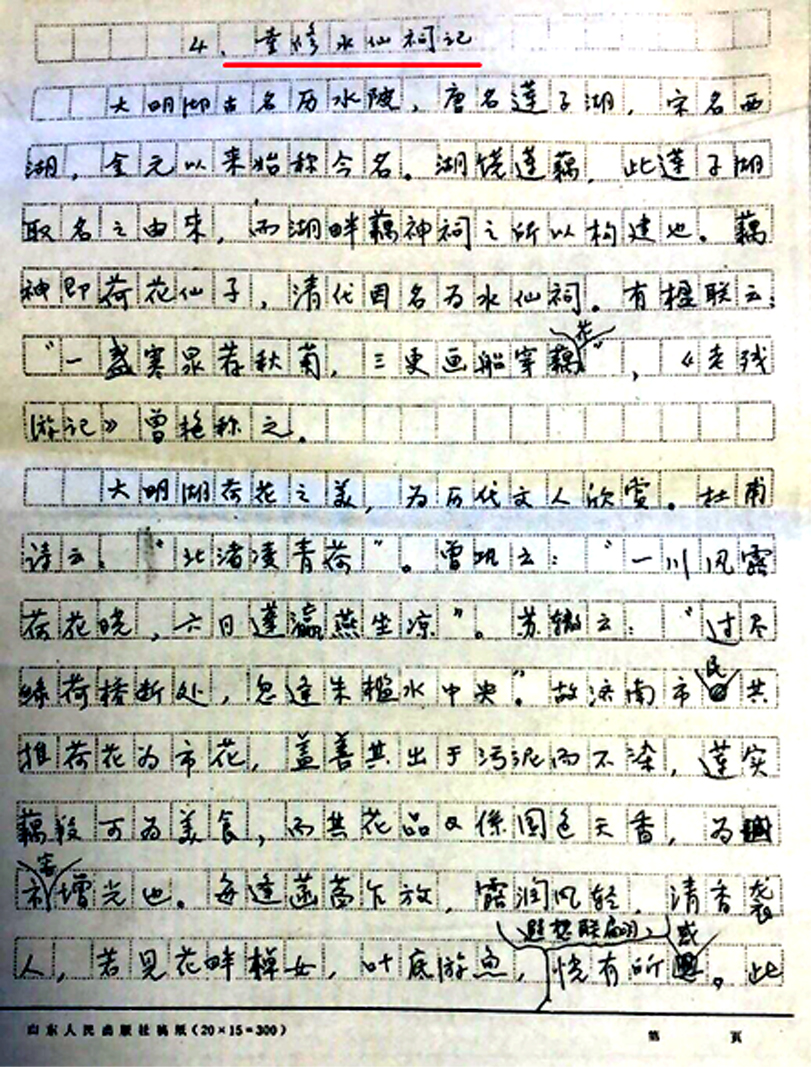 4、重修水仙祠记
大明湖古名历水陂，唐名莲子湖，宋名西
湖，金元以来始称今名。湖饶莲藕，此莲子湖
取名之由来，而湖畔藕神祠之所以构建也。藕
神即荷花仙子，清代因名为水仙祠。有楹联云：
“一盏寒泉荐秋菊，三更画船穿藕花”，《老残
游记》曾艳称之。
大明湖荷花之美，为历代文人欣赏。杜甫
诗云：“北渚凌青荷”。曾巩云：“一川风露
荷花晓，六月蓬瀛燕坐凉”。苏辙云：“过尽
绿荷桥断处，忽逢朱槛水中央”。故济南市民共
推荷花为市花，盖善其出于污泥而不染，莲实
藕段可为美食，而其花品又係国色天香，为
市容增光也。每逢菡萏乍放，露润风轻，清香袭
人，若见花畔棹女，叶底游鱼，遐想联翩，恍有所感。此
山东人民出版社稿纸(20×15=300) 第 页